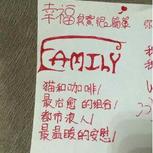 幸福
FAMILY
猫和咖啡!
最治愈的组合!
都市浪人!
最温暖的安慰!